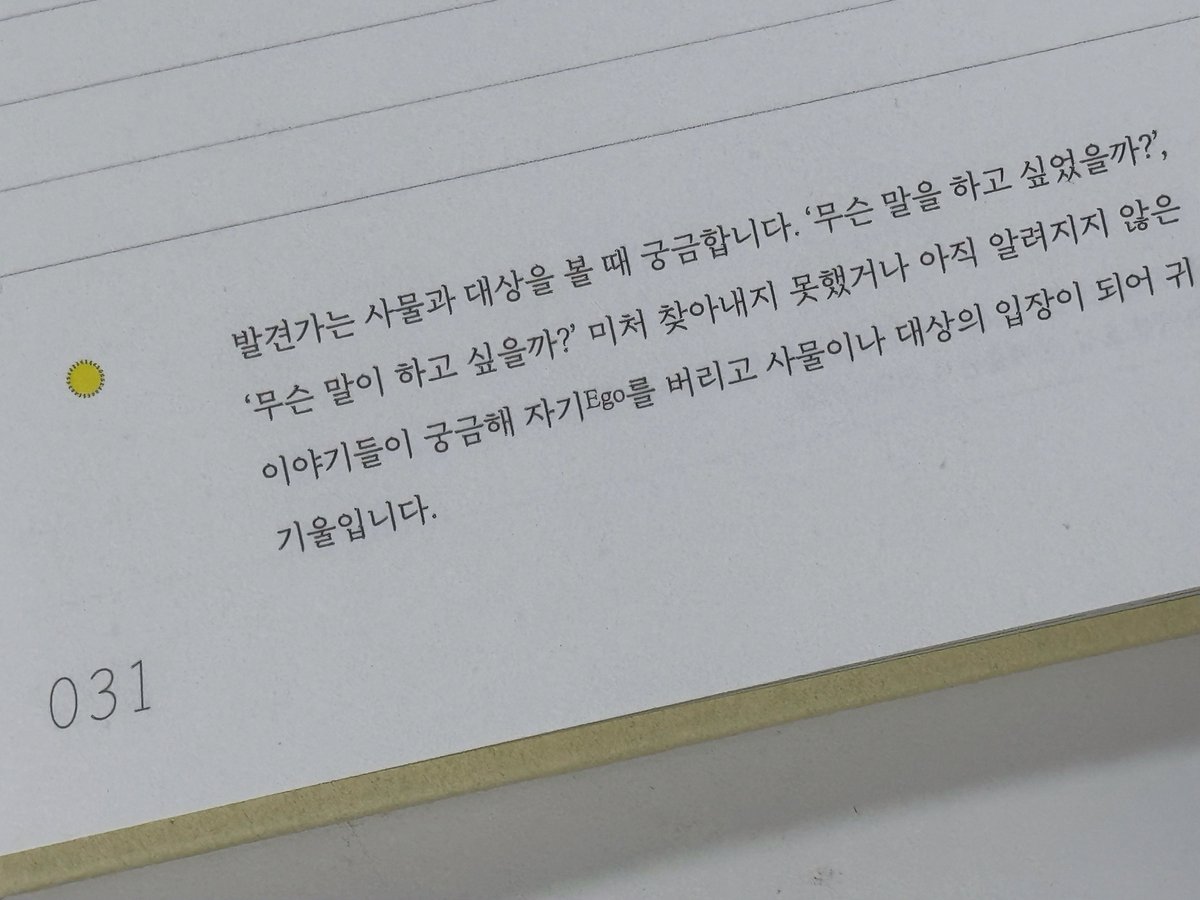 발견가는 사물과 대상을 볼 때 궁금합니다. ‘무슨 말을 하고 싶었을까?’,
‘무슨 말이 하고 싶을까?’ 미처 찾아내지 못했거나 아직 알려지지 않은
이야기들이 궁금해 자기Ego를 버리고 사물이나 대상의 입장이 되어 귀
기울입니다.
031